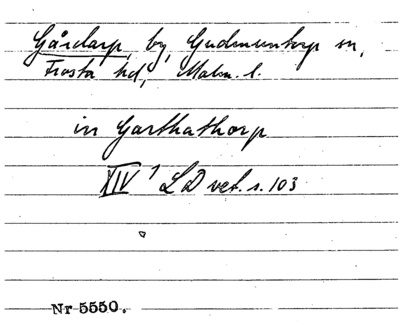 Gårdarp, by, Gudmuntorp sn,
Frosta hd, Malm. l.
in Garthathorp
XIV 1 LD vet. s. 103
Nr 5550.